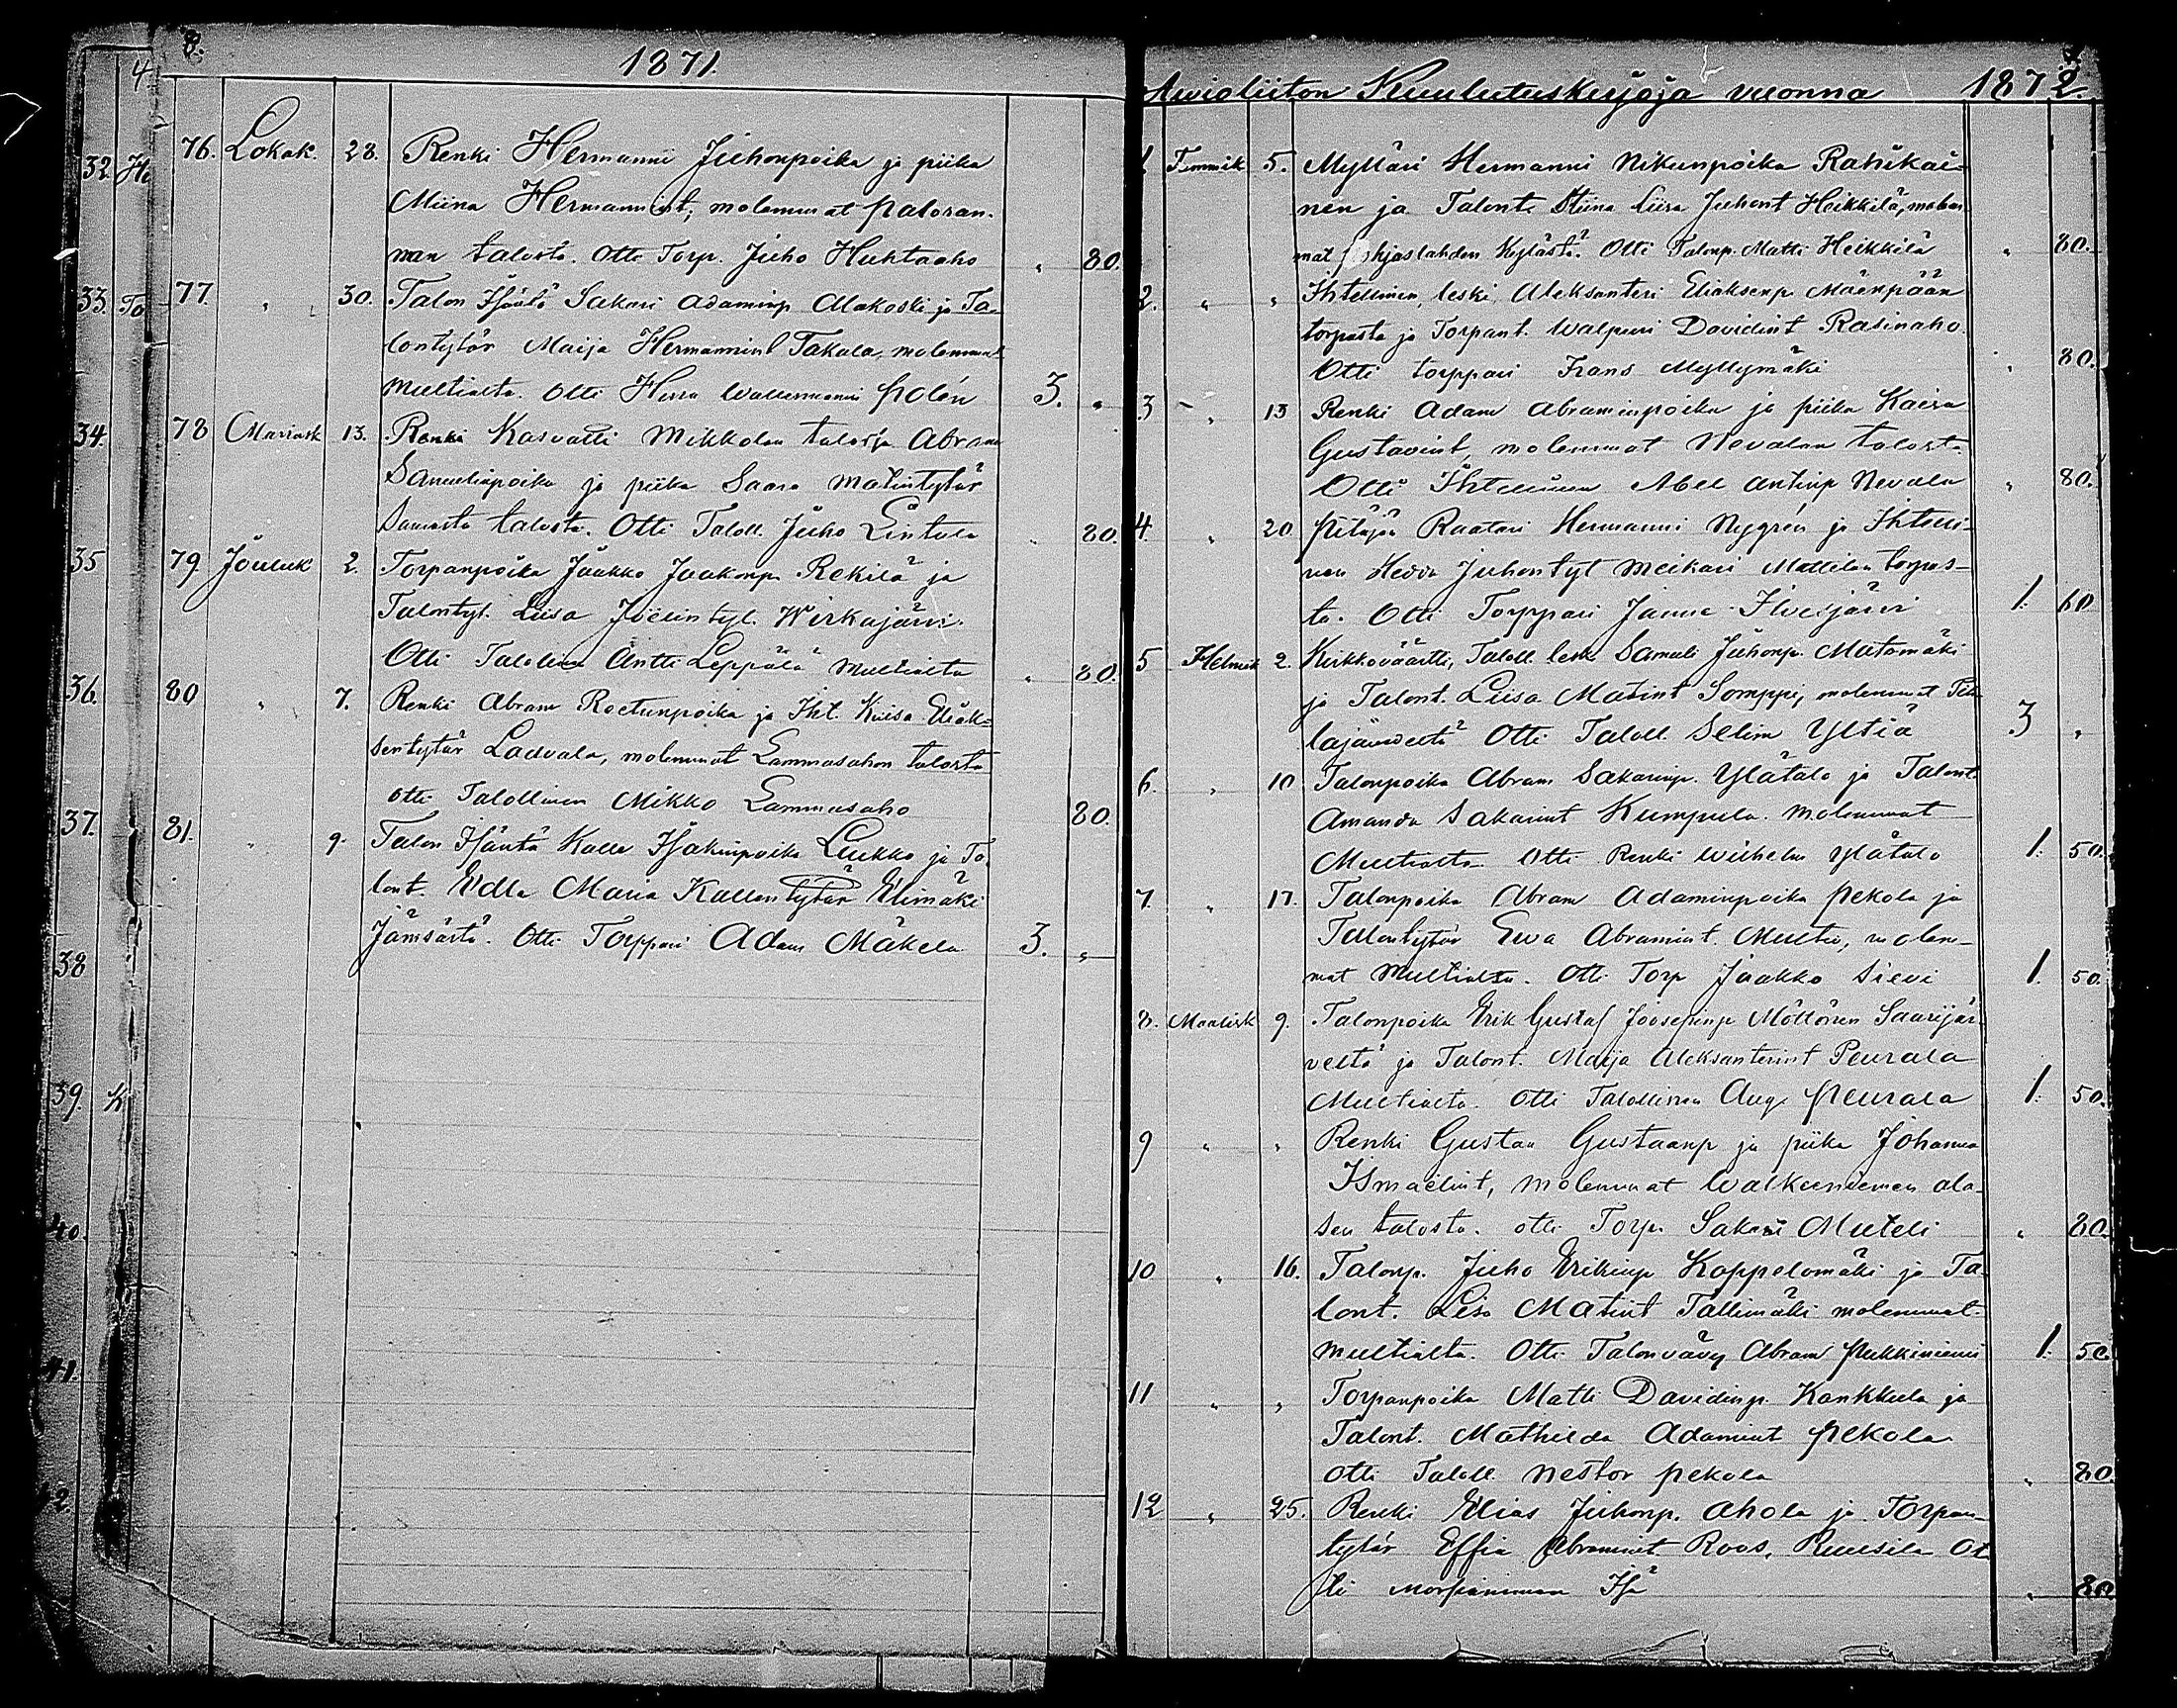 8.
1871.
76. Lokak. 28. Renki Hermanni Juhonpoika ja piika
Miina Hermannint, molemmat Paloran-
nan talosta. Otti Torp. Juho Huhtaaho „ 80.
77. „ 30. Talon Isäntä Sakari Adaminp Alakoski ja Ta-
lontytär Maija Hermannint Takala, molemmat
Multialta. Otti Herra Wallermanni Polén 3. „
78 Marrask 13. Renki Kasvatti Mikkolan talosta Abram
Samulinpoika ja piika Saara Matintytär
Samasta talosta. Otti Taloll. Juho Lintula „ 80.
79 Jouluk 2. Torpanpoika Jaakko Jaakonp. Rekilä ja
Talontyt. Liisa Joelintyt. Wirkajärvi.
Otti Talollinen Antti Leppälä Multialta „ 80.
80 „ 7. Renki Abram Roetunpoika ja Iht. Kaisa Eliak-
sentytär Ladvala, molemmat Lammasahon talosta
otti Talollinen Mikko Lammasaho 80.
81. „ 9. Talon Isäntä Kalle Isakinpoika Luukko ja Ta-
lont. Edla Maria Kallentytär Elimäki
Jämsästä. Otti Torppari Adam Mäkelä 3. „
4
32. He
33. To
34.
35
36.
37.
38
39. K
40.
41.
42.
Avioliiton Kuulutuskirjoja vuonna 1872.
1 Tammik 5. Mylläri Hermanni Nikunpoika Rahikai-
nen ja Talont. Stiina Liisa Juhont Heikkilä, molem
mat Pohjaslahden Kylästä. Otti Talonp. Matti Heikkilä „ 80.
2. „ „ Ihtellinen, leski Aleksanteri Eliaksenp Mäenpään
torpasta ja Torpant. Walpuri Davidint Rasinaho.
Otti torppari Frans Myllymäki „ 80.
3 „ 13 Renki Adam Abraminpoika ja piika Kaisa
Gustavint, molemmat Nevalan talosta
Otti Ihtellinen Abel Antinp Nevala „ 80.
4. „ 20 Pitäjän Raatari Hermanni Nygrén ja Ihtelli-
nen Hedda Juhontyt Meikari Mattilan torpas-
ta. Otti Torppari Janne Ilvesjärvi 1. 60
5 Helmik 2. Kirkkoväärtti, Taloll. lesk Samuli Juhonp. Matomäki
ja Talont. Liisa Matint Somppi, molemmat
lajärveltä Otti Taloll. Selim Yltiä 3 „
6. „ 10 Talonpoika Abram Sakarinp. Ylätalo ja Talont.
Amanda Sakarint Kumpula. molemmat
Multialta Otti Renki Wilhelm Ylätalo 1. 50.
7. „ 17. Talonpoika Abram Adaminpoika Pekola ja
Talontytär Ewa Abramint. Multia, molem-
mat Multialta. Otti Torp Jaakko Sievi 1. 50.
8. Maalisk 9. Talonpoika Erik Gustaf Joosefinp Möttönen Saarijär-
veltä ja Talont. Maija Aleksanterint Peurala
Multialta. Otti Talollinen Aug. Peurala 1. 50.
9 „ „ Renki Gustaa Gustaanp ja piika Johanna
Ismaelint, molemmat Walkeeniemen ala-
sen talosta. otti Torp. Sakari Muteli „ 80.
10 „ 16. Talonp. Juho Erikinp Koppelomäki ja Ta-
lont. Lisa Matint Tallimäki molemmat
Multialta. Otti Talonvävy Abram Pukkiniemi 1. 50
11 „ „ Torpanpoika Matti Davidinp. Kankkula ja
Talont. Mathilda Adamint Pekola
Otti Taloll. Nestor Pekola „ 80.
12 „ 25. Renki Elias Juhonp. Ahola ja Torpan-
tytär Effia Abramint Roos, Ruusila Ot-
ti morsiammen Isä „ 80.